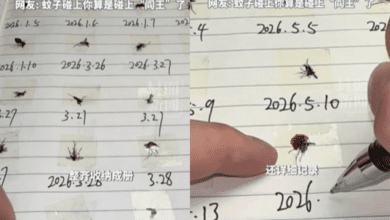 网友:蚊子碰上你算是碰上“阎王”了
2026.1.5
2026.1.6
2026.1.7
2026.1.10
2026.3.26
3.27
3.27
3.27
2026.3.28
3.28
整齐收纳成册
网友:蚊子碰上你算是碰上“阎王”了
2026.5.5
2026.5.10
还详细记录
2026.
.13